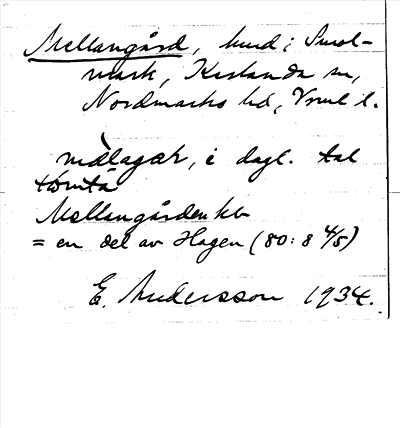 Mellangård, hmd i Smol-
mark, Karlanda sn,
Nordmarks hd, Vrml l.
mèlagaṛ, i dagl. tal
tömta
Mellangården kb
= en del av Hagen (80:8 4/5)
E. Andersson 1934.